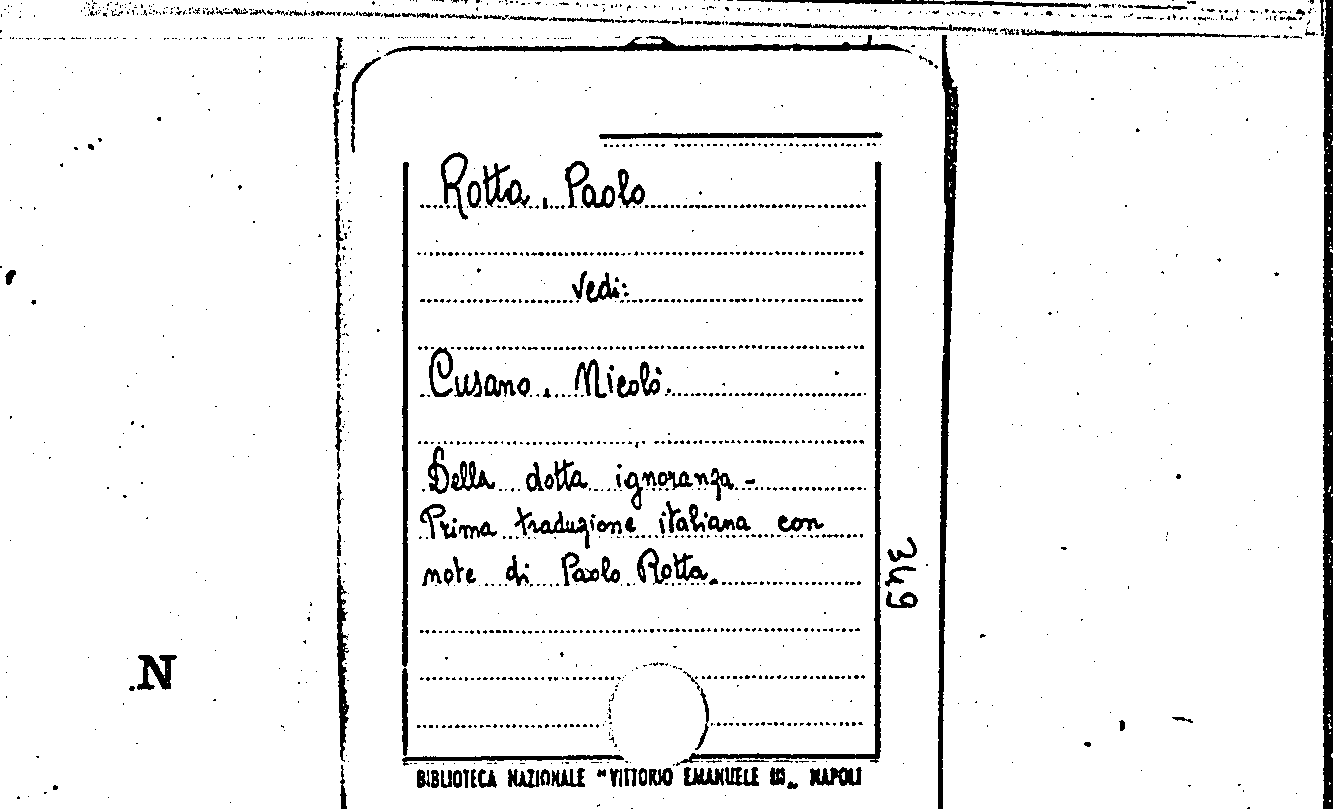 Rotta, Paolo
Vedi:
Cusano, Nicolò.
Della dotta ignoranza -
Prima traduzione italiana con
note di Paolo Rotta.
349
N
BIBLIOTECA NAZIONALE "VITTORIO EMANUELE III„ NAPOLI